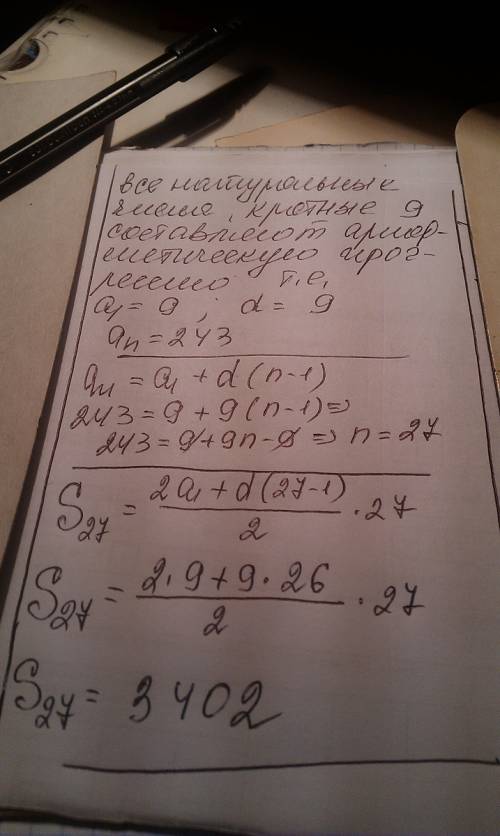 все натуральные
числа, кратные 9
составляют ариф-
метическую прог-
рессию т.е.
a₁ = 9 ; d = 9
aₙ = 243
aₙ = a₁ + d (n-1)
243 = 9 + 9 (n-1) ⇒
243 = 9 + 9n - 9 ⇒ n = 27
S₂₇ = (2a₁ + d (27-1))/2 · 27
S₂₇ = (2 · 9 + 9 · 26)/2 · 27
S₂₇ = 3402